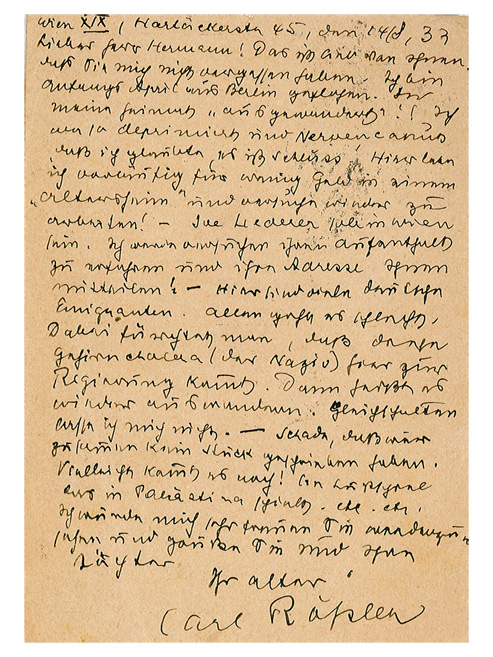 Wien XIX, Hartäckerstr 45, den 14/8, 33
Lieber Herr Hermann! Das ist lieb von Ihnen,
daß Sie mich nicht vergessen haben. Ich bin
Anfangs April aus Berlin geflohen. In
meine Heimat „ausgewandert"! Ich
war so deprimiert und Nerven
daß ich glaubte, es ist Schluss! Hier lebe
ich vorläufig für wenig Geld in einem
„Altersheim" und versuche wieder zu
arbeiten! — Joe Lederer soll in Wien
sein. Ich werde versuchen ihren Aufenthalt
zu erfahren und ihre Adresse Ihnen
mitteilen! — Hier sind viele deutsche
Emigranten. Allen geht es schlecht.
Dabei fürchtet man, daß diese
Gehirncholera (der Nazis) hier zur
Regierung kommt. Dann heißt es
wieder auswandern! Gleichschalten
lasse ich mich nicht. — Schade, daß wir
zusammen kein Stück geschrieben haben.
Vielleicht kommt es noch! Ein Lustspiel
das in Palästina spielt. etc. etc.
Ich würde mich sehr freuen Sie
sehen und grüße Sie und Ihre
Töchter
Ihr alter
Carl Rößler